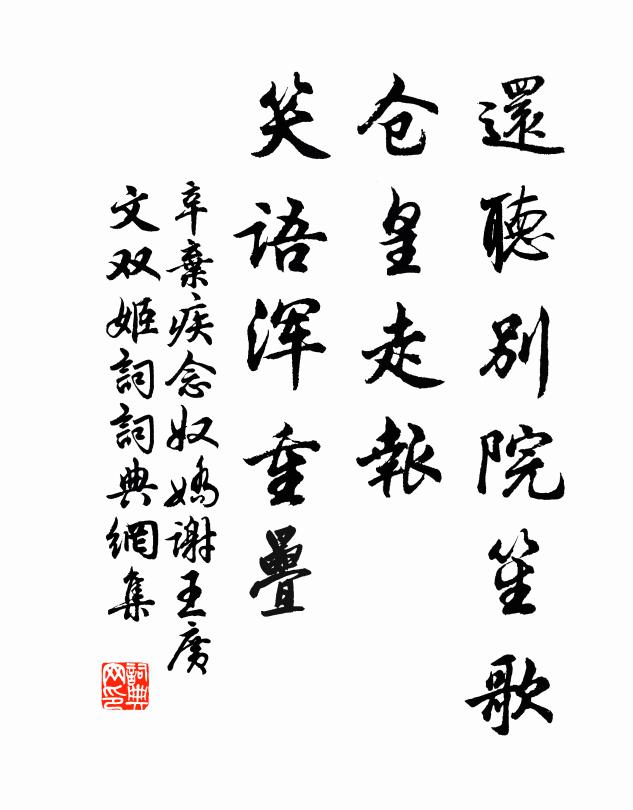 還聽别院笙歌
仓皇走報
笑語浑重疊
辛棄疾念奴嬌谢王廣
文双姬詞詞典網集
詞典
网印